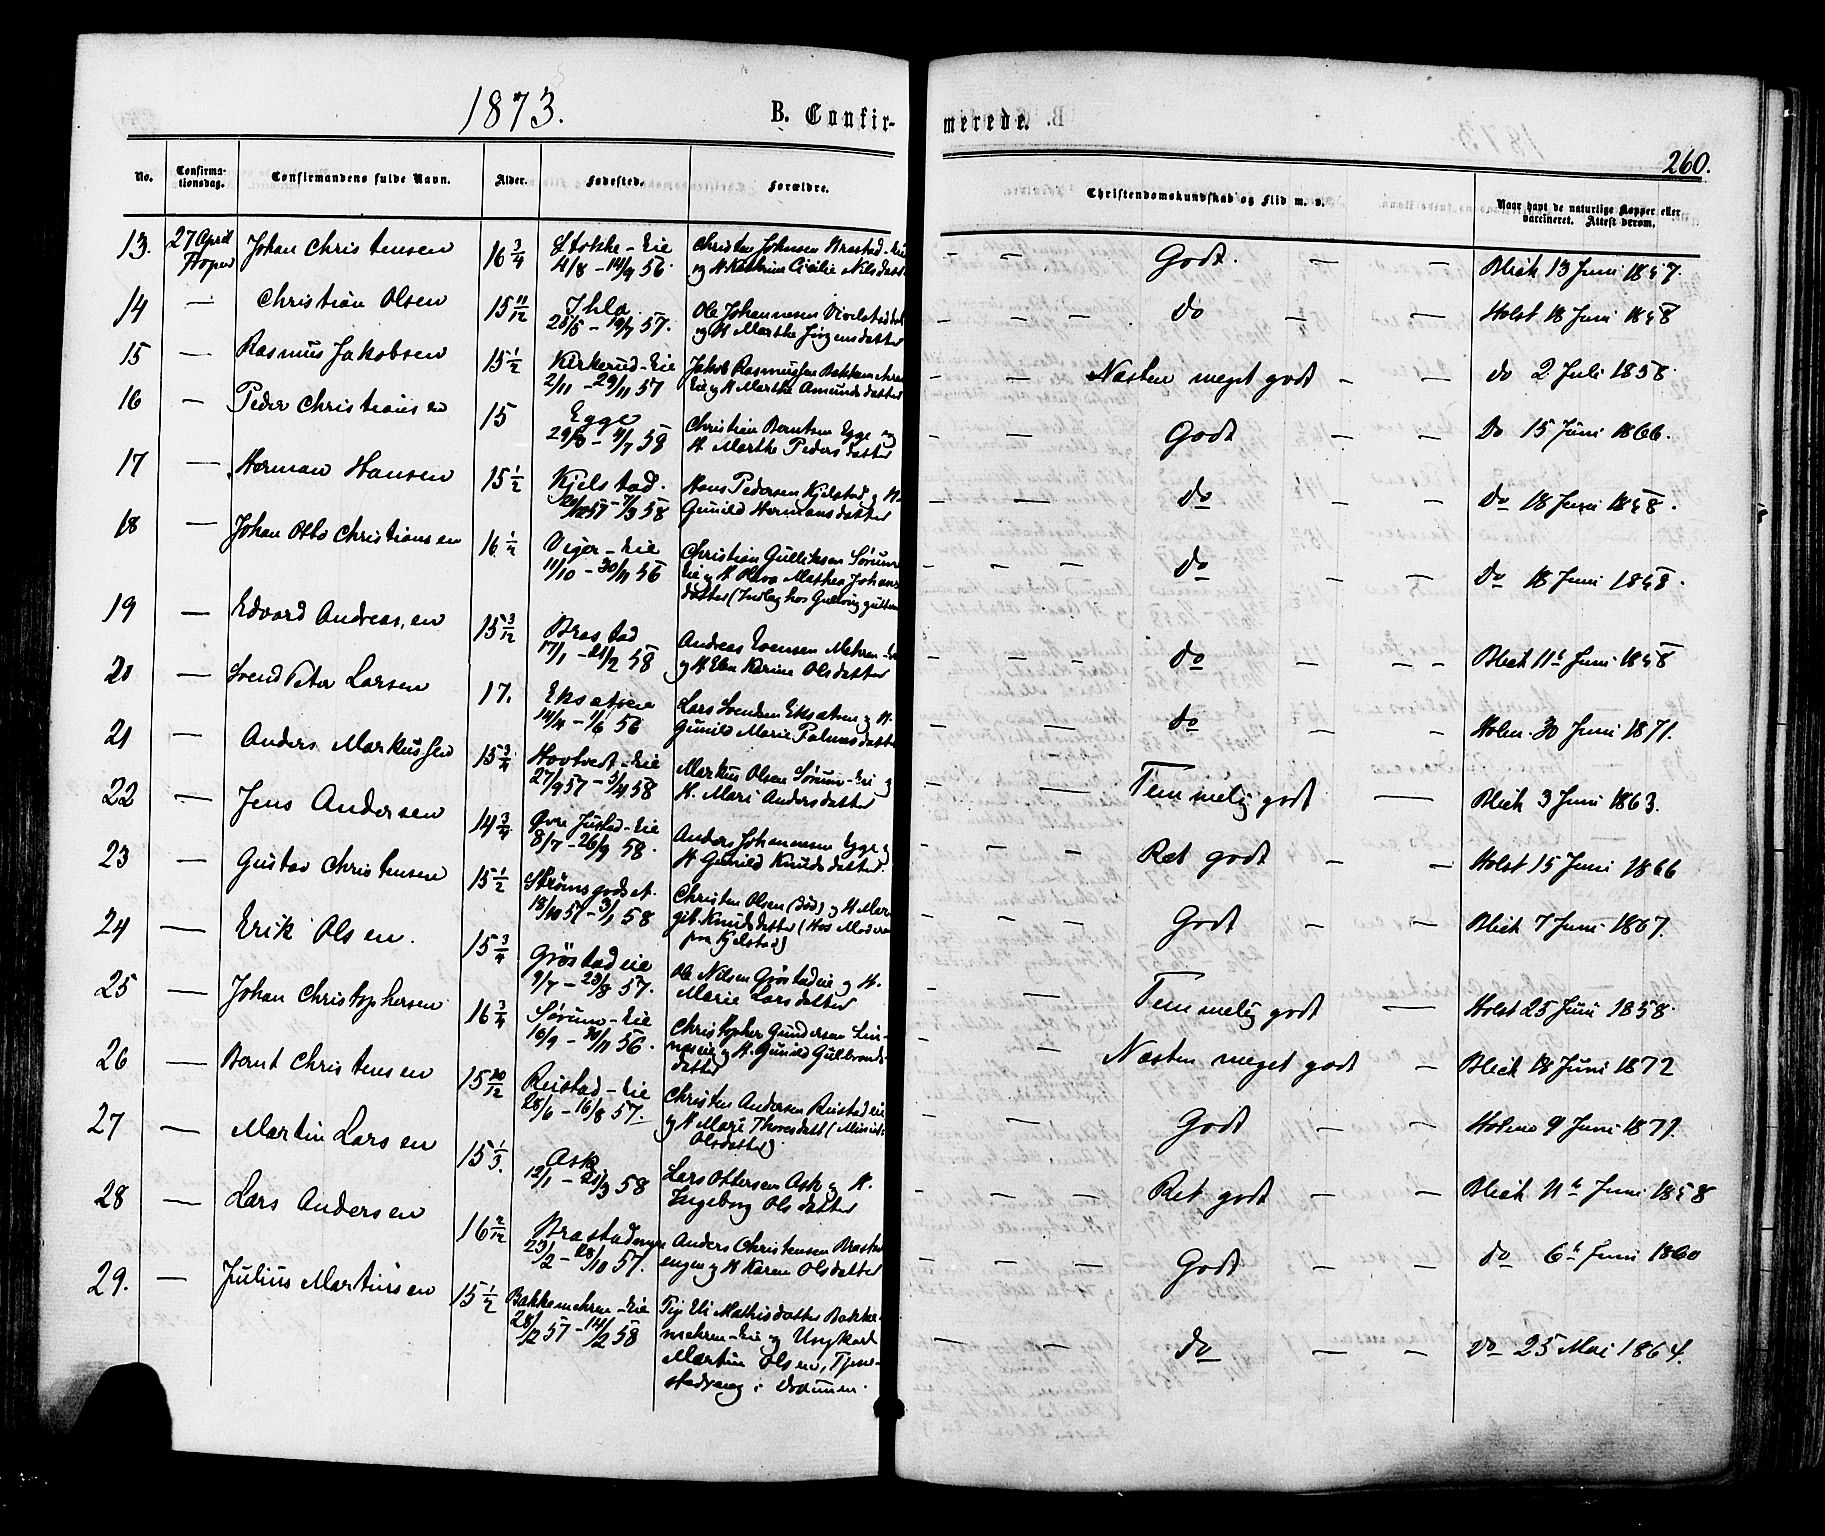 1873.
B. Confir-
merede.
260.
No.
Confirma-
tionsdag.
Confirmandens fulde Navn.
Alder.
Fødested.
Forældre.
Christendomskundskab og Flid m. v.
Naar havt de naturlige Kopper eller
vaccineret. Attest derom.
13. 27 April Johan Christensen 16 3/4 Stokke-Eie Christen Johnsen Brastad-Eie
4/8 - 14/9 56. og H. Kathrine Cicilie Nilsdatter
Godt. — — Blich 13 Juni 1857.
14 — Christian Olsen 15 11/12 Ihle Ole Johannesen
25/5 - 19/7 57. og H. Marthe Jørgensdatter
— — — do — — Holst 18 Juni 1858
15 — Rasmus Jakobsen 15 1/2 Kirkerud-Eie Jakob Rasmussen Bakken
2/11 - 29/11 57 Eie og H. Marthe Amundsdatter
— — Næsten meget godt — — do 2 Juli 1858.
16 — Peder Christiansen 15 Egge Christian Berntsen Egge og
58 H. Marthe Pedersdatter
— — Godt — — Do 15 Juni 1866.
17 — Herman Hansen 15 1/2 Kjelstad. Hans Pedersen Kjelstad og H.
57 - 7/3 58 Gunild Hermansdatter
— — do — — Do 18 Juni 1858.
18 — Johan Otto Christiansen 16 1/2 Viger-Eie Christian Gulliksen Sørum
11/10 - 30/11 56 Eie og H. Mathea Johans
datter
— — do — — Do 18 Juni 1858.
19 — Edvard Andreasen 15 3/12 Brastad Andreas Evensen Mehren-Eie
17/1 - 21/2 58 og H. Karine Olsdatter
— — — do — — — Blich 11t Juni 1858
20 — Svend Peter Larsen 17. Eksætreie Lars Svendsen Eksætren og H.
14/4 - 1/6 56 Gunild Marie Palmesdatter
— — do — — Holm 30 Juni 1871.
21 — Anders Markussen 15 3/4 Hovtvedt-Eie Markus Olsen Sørum-Eie og
27/9 57 - 5/4 58 H. Mari Andersdatter
— — Temmelig godt — Blich 3 Juni 1863.
22 — Jens Andersen 14 3/4 Øvre Justad-Eie Anders Johannesen Egge og
8/7 - 26/9 58. H. Gunild Knudsdatter.
— — — Ret godt — — Holst 15 Juni 1866
23 — Gustav Christensen 15 1/2 Strømsgodset. Christen Olsen (død) og H. Mar
18/10 57 - 3/1 58 git Knudsdatter (Hos Moderen
fra Kjelstad)
— — — Godt — — Blich 7 Juni 1867.
24 — Erik Olsen. 15 3/4 Grøstadeie Ole Nilsen Grøstadeie og H.
9/7 - 23/8 57. Marie Larsdatter
— — Temmelig godt — — Holst 25 Juni 1858.
25 — Johan Christophersen 16 3/4 Sørum-Eie Christopher Gundersen Lin-
16/9 - 30/11 56. neseie og H. Gunild Gulbrands
datter
— — Næsten meget godt — Blich 18 Juni 1872
26 — Bernt Christensen 15 10/12 Reistad-Eie Christen Andersen Reistadeie
28/6 - 16/8 57. og H. Mari Thoresdatt
Olsdatter)
— — — Godt — — Holme 9 Juni 1871.
27 — Martin Larsen 15 1/3. Ask Lars Ottersen Ask og H.
12/1 - 21/3 58 Ingeborg Olsdatter
— — — Ret godt — — Blich 11te Juni 1858
28 — Lars Andersen 16 2/12 Brastadengen Anders Christensen Brastad
23/2 - 18/10 57. engen og H. Karen Olsdatter
— — — Godt — — do 6t Juni 1860
29. — Julius Martinsen 15 1/2 Bakkemehren-Eie Pige Eli Mathisdatter Bakke
28/12 57 - 14/2 58 mehren-Eie og Ungkarl
Martin Olsen, Tjene-
stedreng i Drammen.
— — do — — Do 25 Mai 1864.